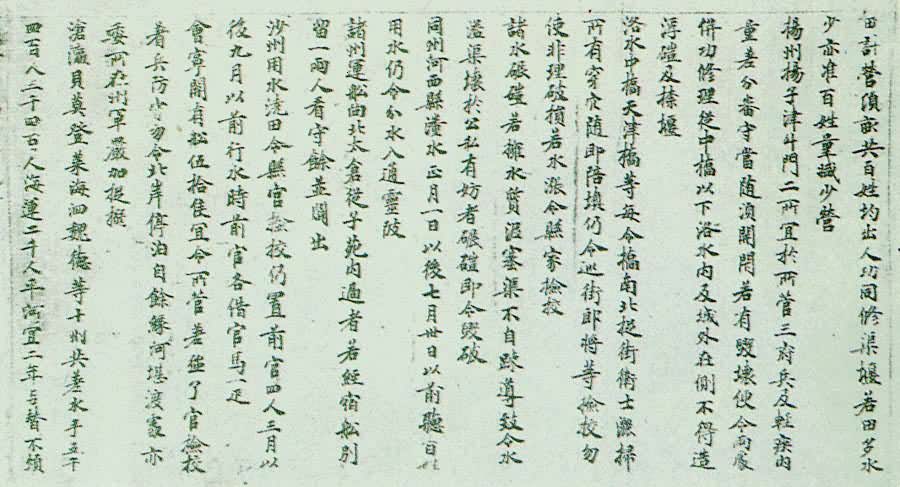 田計營頃畝共百姓均出人功同修渠堰若田多水
少亦准百姓量減少營
揚州揚子津斗門二所宜於所管三府兵及輕疾內
量差分番守當隨須開閉若有毀壞便令兩處
併功修理從中橋以下洛水內及城外在側不得造
浮磑及捺堰
洛水中橋天津橋等每令橋南北捉街衛士灑掃
所有穿穴隨即陪填仍令巡街郎將等檢校勿
使非理破損若水漲令縣家檢校
諸水碾磑若擁水質泥塞渠不自疎導致令水
溢渠壞於公私有妨者碾磑即令毀破
同州河西縣瀵水正月一日以後七月卅日以前聽百姓
用水仍令分水入通靈陂
諸州運船向北太倉從子苑內過者若經宿船別
留一兩人看守餘並闢出
沙州用水澆田令縣官檢校仍置前官四人三月以
後九月以前行水時前官各借官馬一疋
會寧關有船伍拾隻宜令所管差強了官檢校
著兵防守勿令北岸停泊自餘緣河堪渡處亦
委所在州軍嚴加捉搦
滄瀛貝莫登萊海泗魏德等十州共差水手五千
四百人三千四百人海運二千人平河宜二年與替不煩